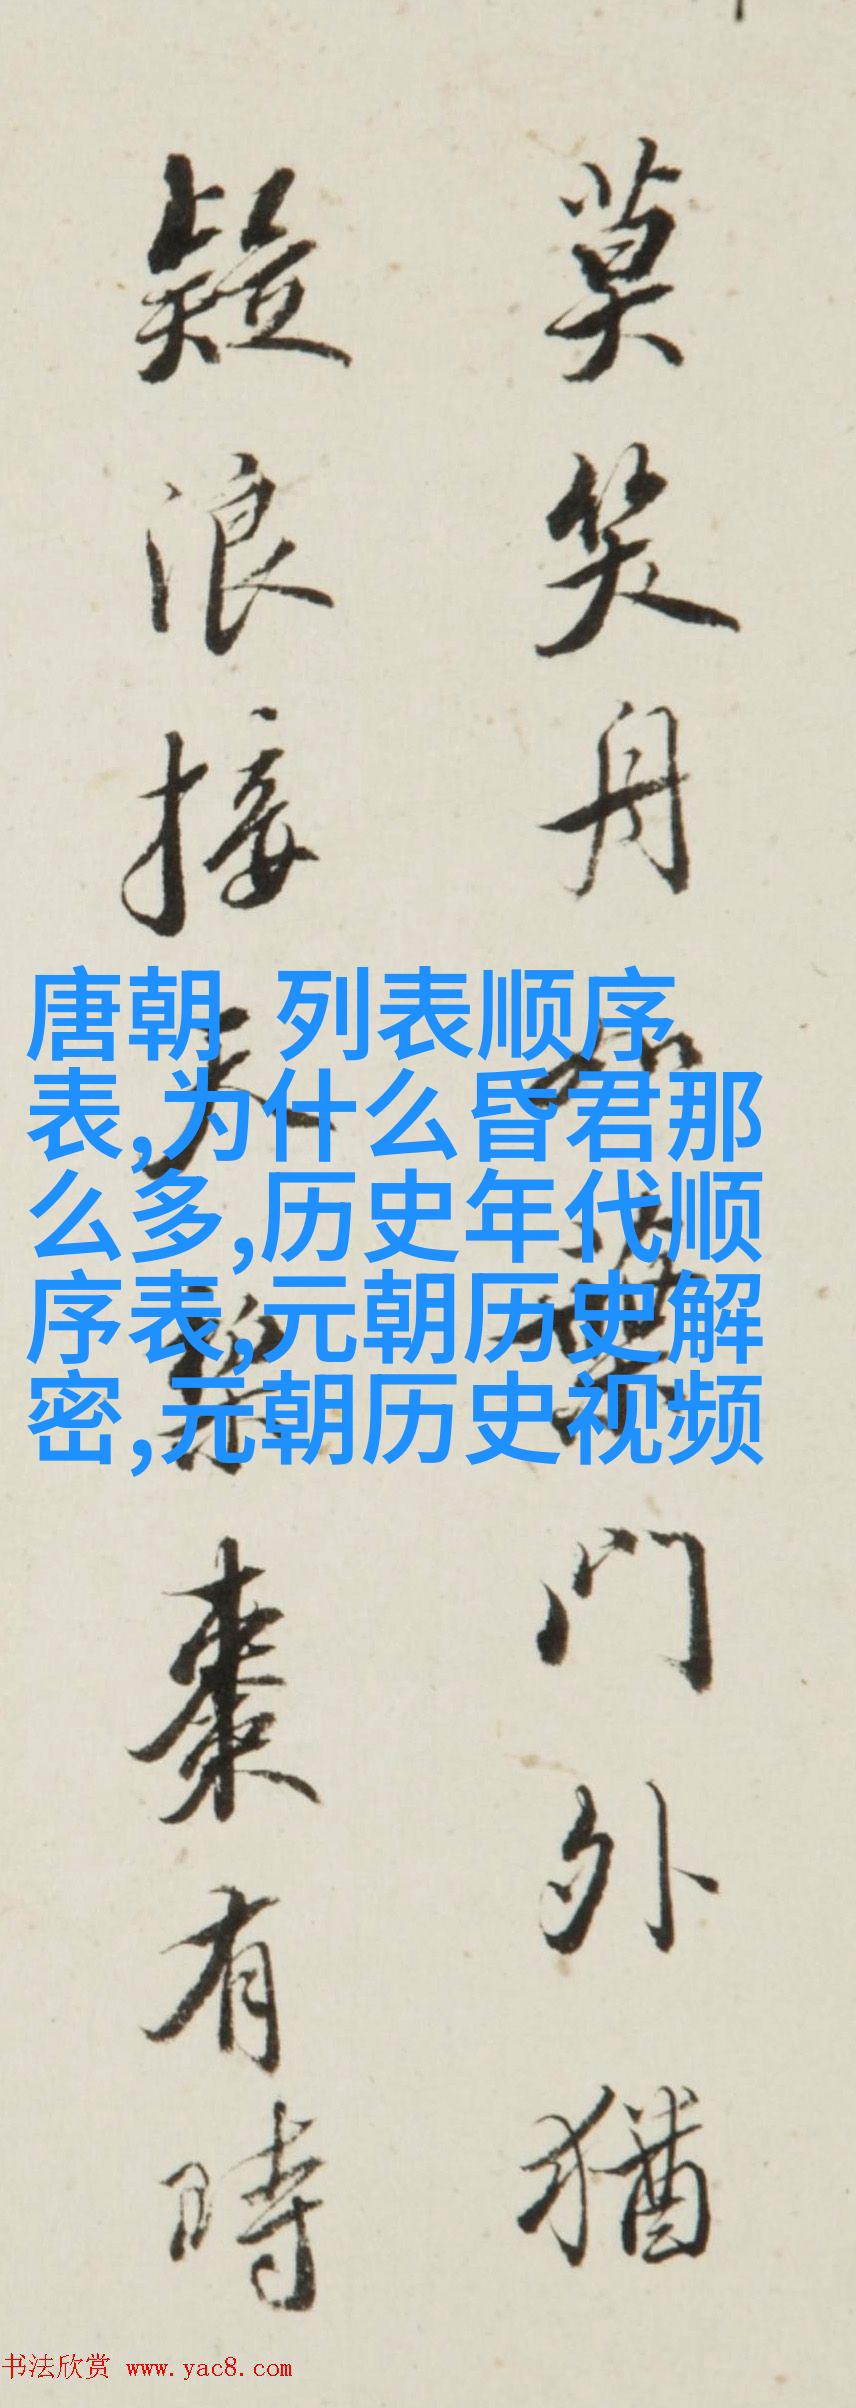 莫笑舟如葉門外猶
疑浪接天梨棗有時
唐朝 列表顺序
表,为什么昏君那
么多,历史年代顺
序表,元朝历史解
密,元朝历史视频
书法欣赏 www.yac8.com